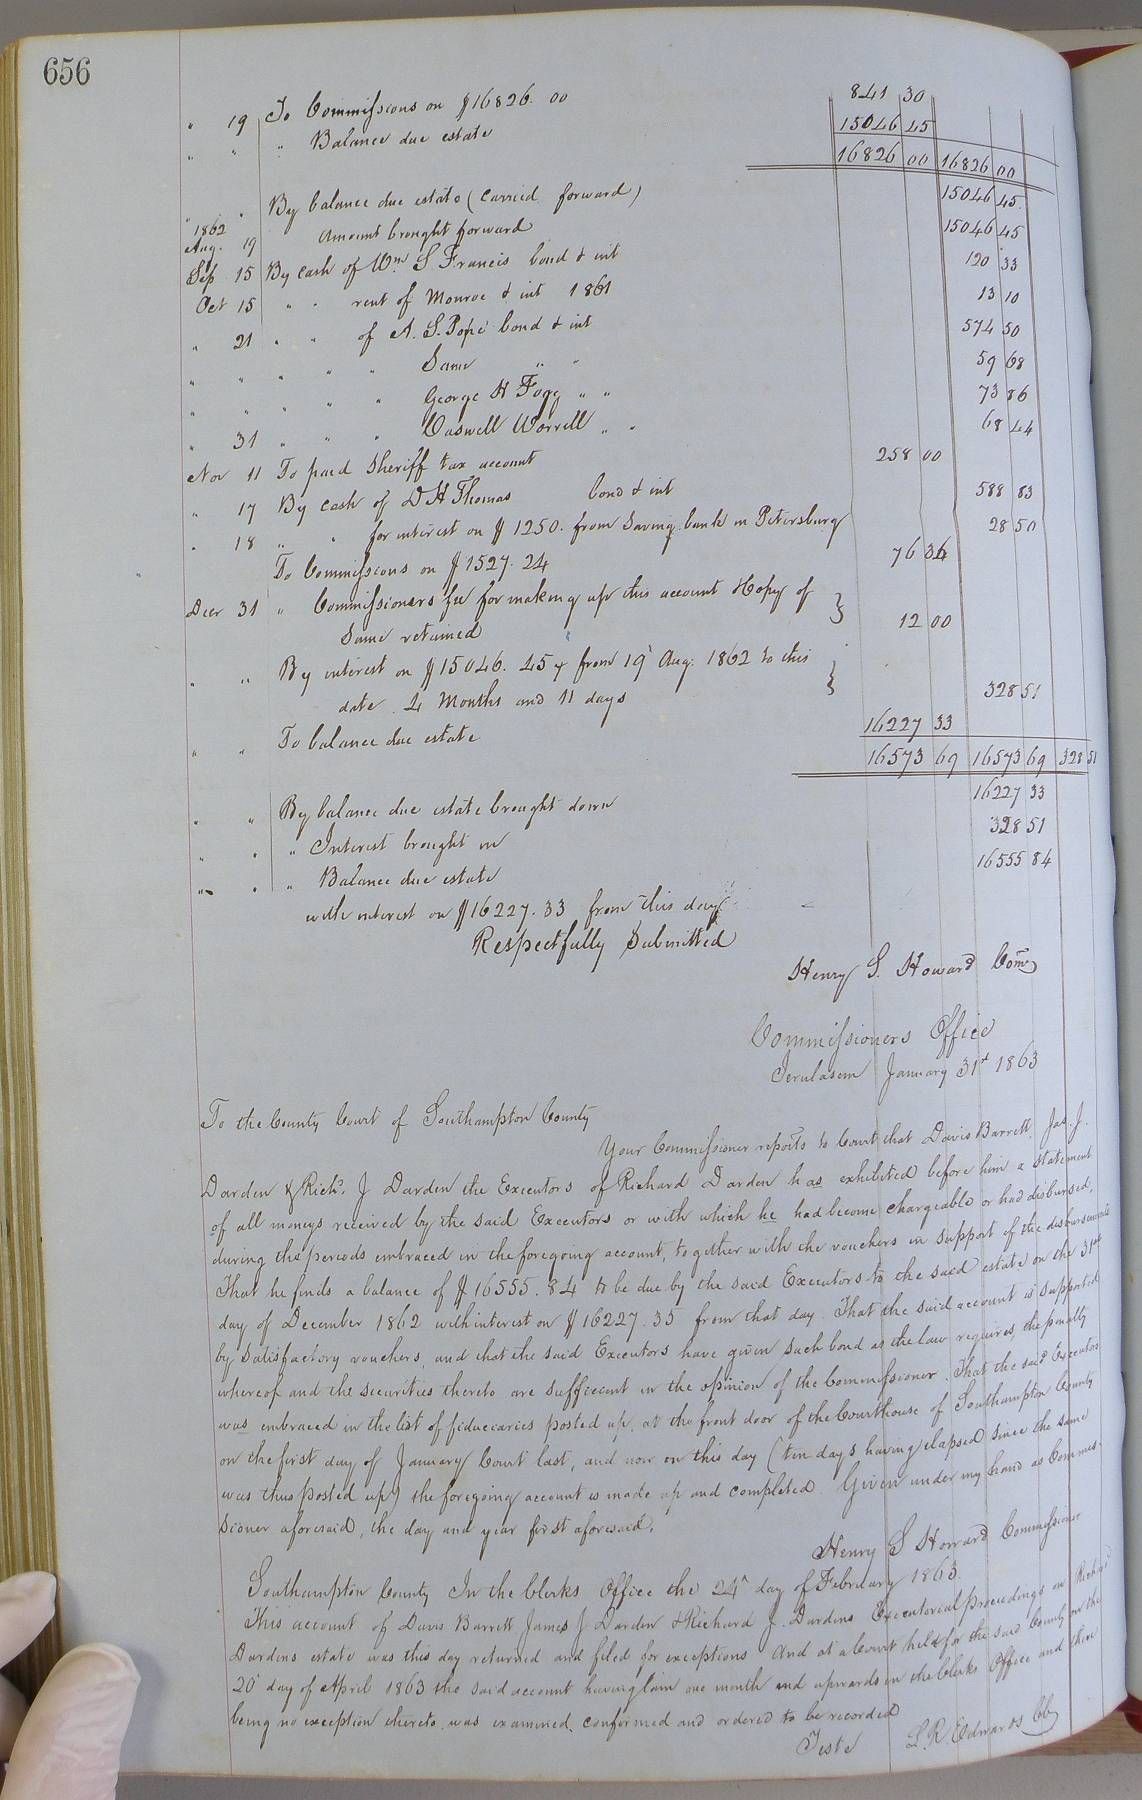 656
" 19 To Commissions on $16826.00 841 30
" " " Balance due estate 15046 45
16826 00 16826 00
" " By balance due estate (carried forward) 15046 45
1862
Aug. 19 Amount brought forward 15046 45
Sep 15 By cash of Wm S Francis bond & int 120 33
Oct 15 " " rent of Monroe & int 1861 13 10
" 21 " " of A. S. Pope bond & int 574 50
" " " " " Same " " 59 68
" " " " " George H Fogg " " 73 86
" 31 " " " Caswell Worrell " " 68 44
Nov 11 To paid Sheriff tax account 258 00
" 17 By cash of D H Thomas bond & int 588 83
" 18 " " for interest on $1250. from Saving bank in Petersburg 28 50
To Commissions on $1527.24 76 36
Decr 31 " Commissioners fee for making up this account & Copy of
Same retained 12 00
" " By interest on $15046.45 from 19th Aug. 1862 to this
date 4 Months and 11 days 328 51
" " To balance due estate 16227 33
16573 69 16573 69 328 51
" " By balance due estate brought down 16227 33
" " " Interest brought in 328 51
" " " Balance due estate 16555 84
with interest on $16227.33 from this day
Respectfully Submitted
Henry S. Howard Comr
Commissioners Office
Jerulasem January 31st 1863
To the County Court of Southampton County
Your Commissioner reports to Court that Davis Barrett, Jas. J.
Darden & Richd. J Darden the Executors of Richard Darden has exhibited before him a statement
of all moneys received by the said Executors or with which he had become chargeable or had disbursed,
during the periods embraced in the foregoing account, together with the vouchers in support of the disbursements
That he finds a balance of $16555.84 to be due by the said Executors to the said estate on the 31st
day of December 1862 with interest on $16227.33 from that day. That the said account is supported
by satisfactory vouchers, and that the said Executors have given such bond as the law requires, the penalty
whereof and the securities thereto are sufficient in the opinion of the Commissioner. That the said Executors
was embraced in the list of fiduciaries posted up, at the front door of the Courthouse of Southampton County
on the first day of January Court last, and now on this day (ten days having elapsed since the same
was thus posted up) the foregoing account is made up and completed. Given under my hand as Commis-
sioner aforesaid, the day and year first aforesaid.
Henry S Howard Commissioner
Southampton County In the Clerks Office the 24th day of February 1863.
This account of Davis Barrett James J Darden & Richard J. Dardens Executorial proceedings on Richard
Dardens estate was this day returned and filed for exceptions And at a Court held for the said County on the
20th day of April 1863 the said account having lain one month and upwards in the Clerks Office and there
being no exception thereto, was examined, confirmed and ordered to be recorded
Teste L. R. Edwards CC